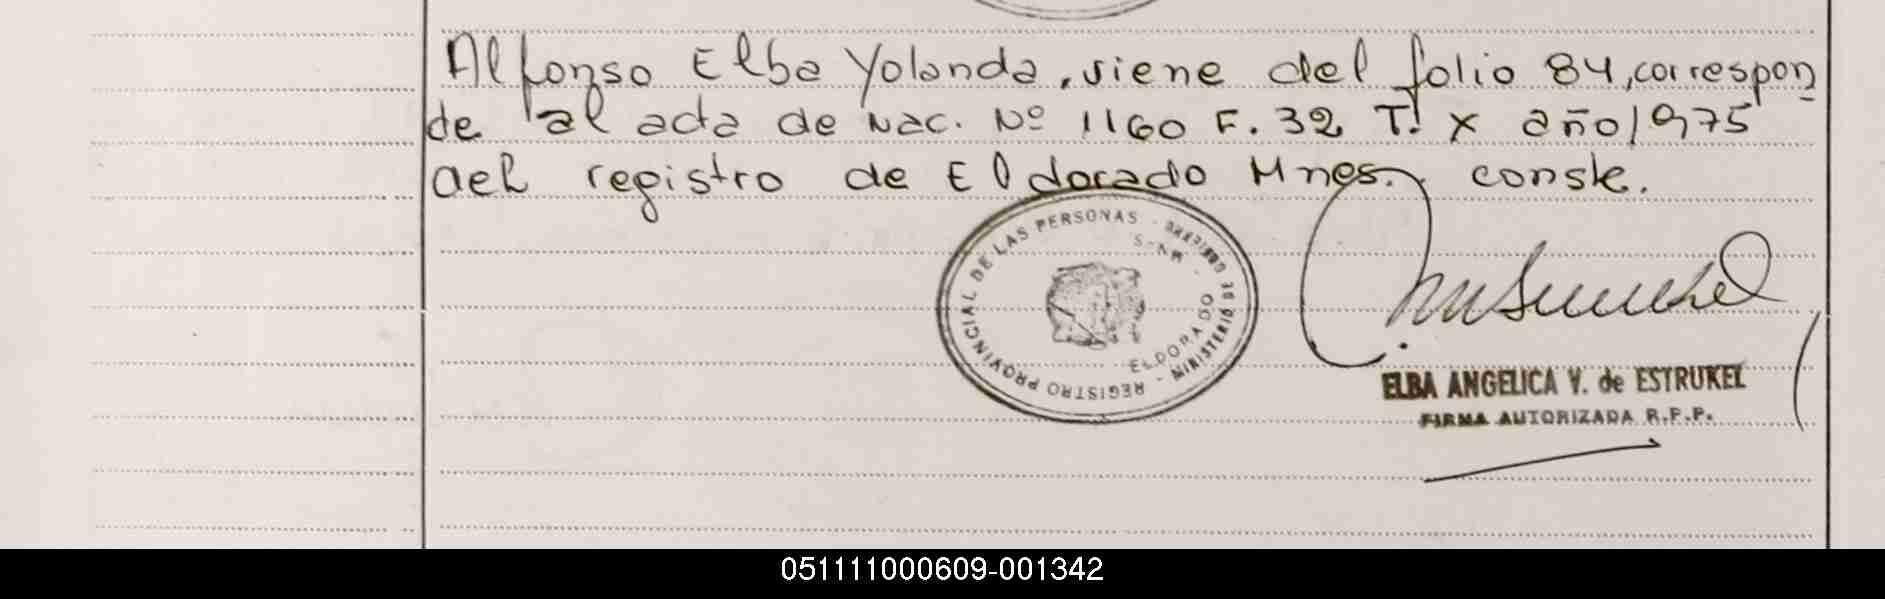 Alfonso Elba Yolanda, viene del folio 84, correspon
de al acta de Nac. Nº 1160 F. 32 Tº X año 1975
del registro de Eldorado Mnes. conste.
REGISTRO PROVINCIAL DE LAS PERSONAS - MINISTERIO DE GOBIERNO
ELDORADO
ELBA ANGELICA V. de ESTRUKEL
FIRMA AUTORIZADA R.P.P.
051111000609-001342